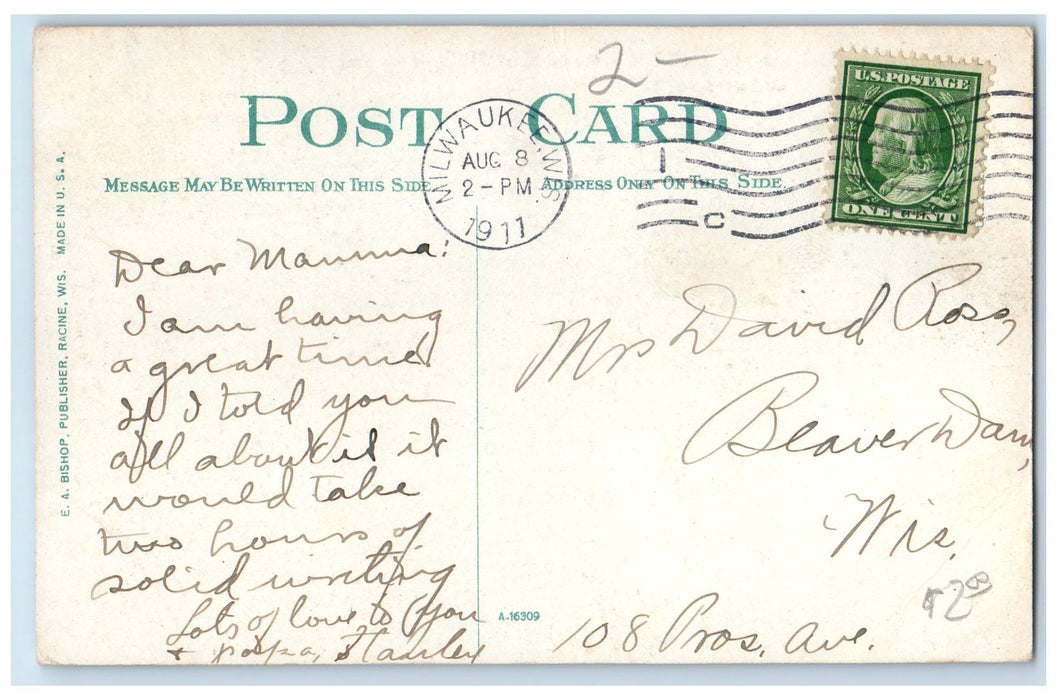 2 —
POST CARD
MESSAGE MAY BE WRITTEN ON THIS SIDE
ADDRESS ONLY ON THIS SIDE
MILWAUKEE, WIS.
AUG 8
2 - PM
1911
1
C
U.S. POSTAGE
ONE CENT
E. A. BISHOP, PUBLISHER, RACINE, WIS. MADE IN U. S. A.
Dear Mamma:
I am having
a great time
If I told you
all about it it
would take
two hours of
solid writing
Lots of love to you
+ papa, Stanley
Mrs David Ross,
Beaver Dam,
Wis.
108 Pros. Ave.
A-16309